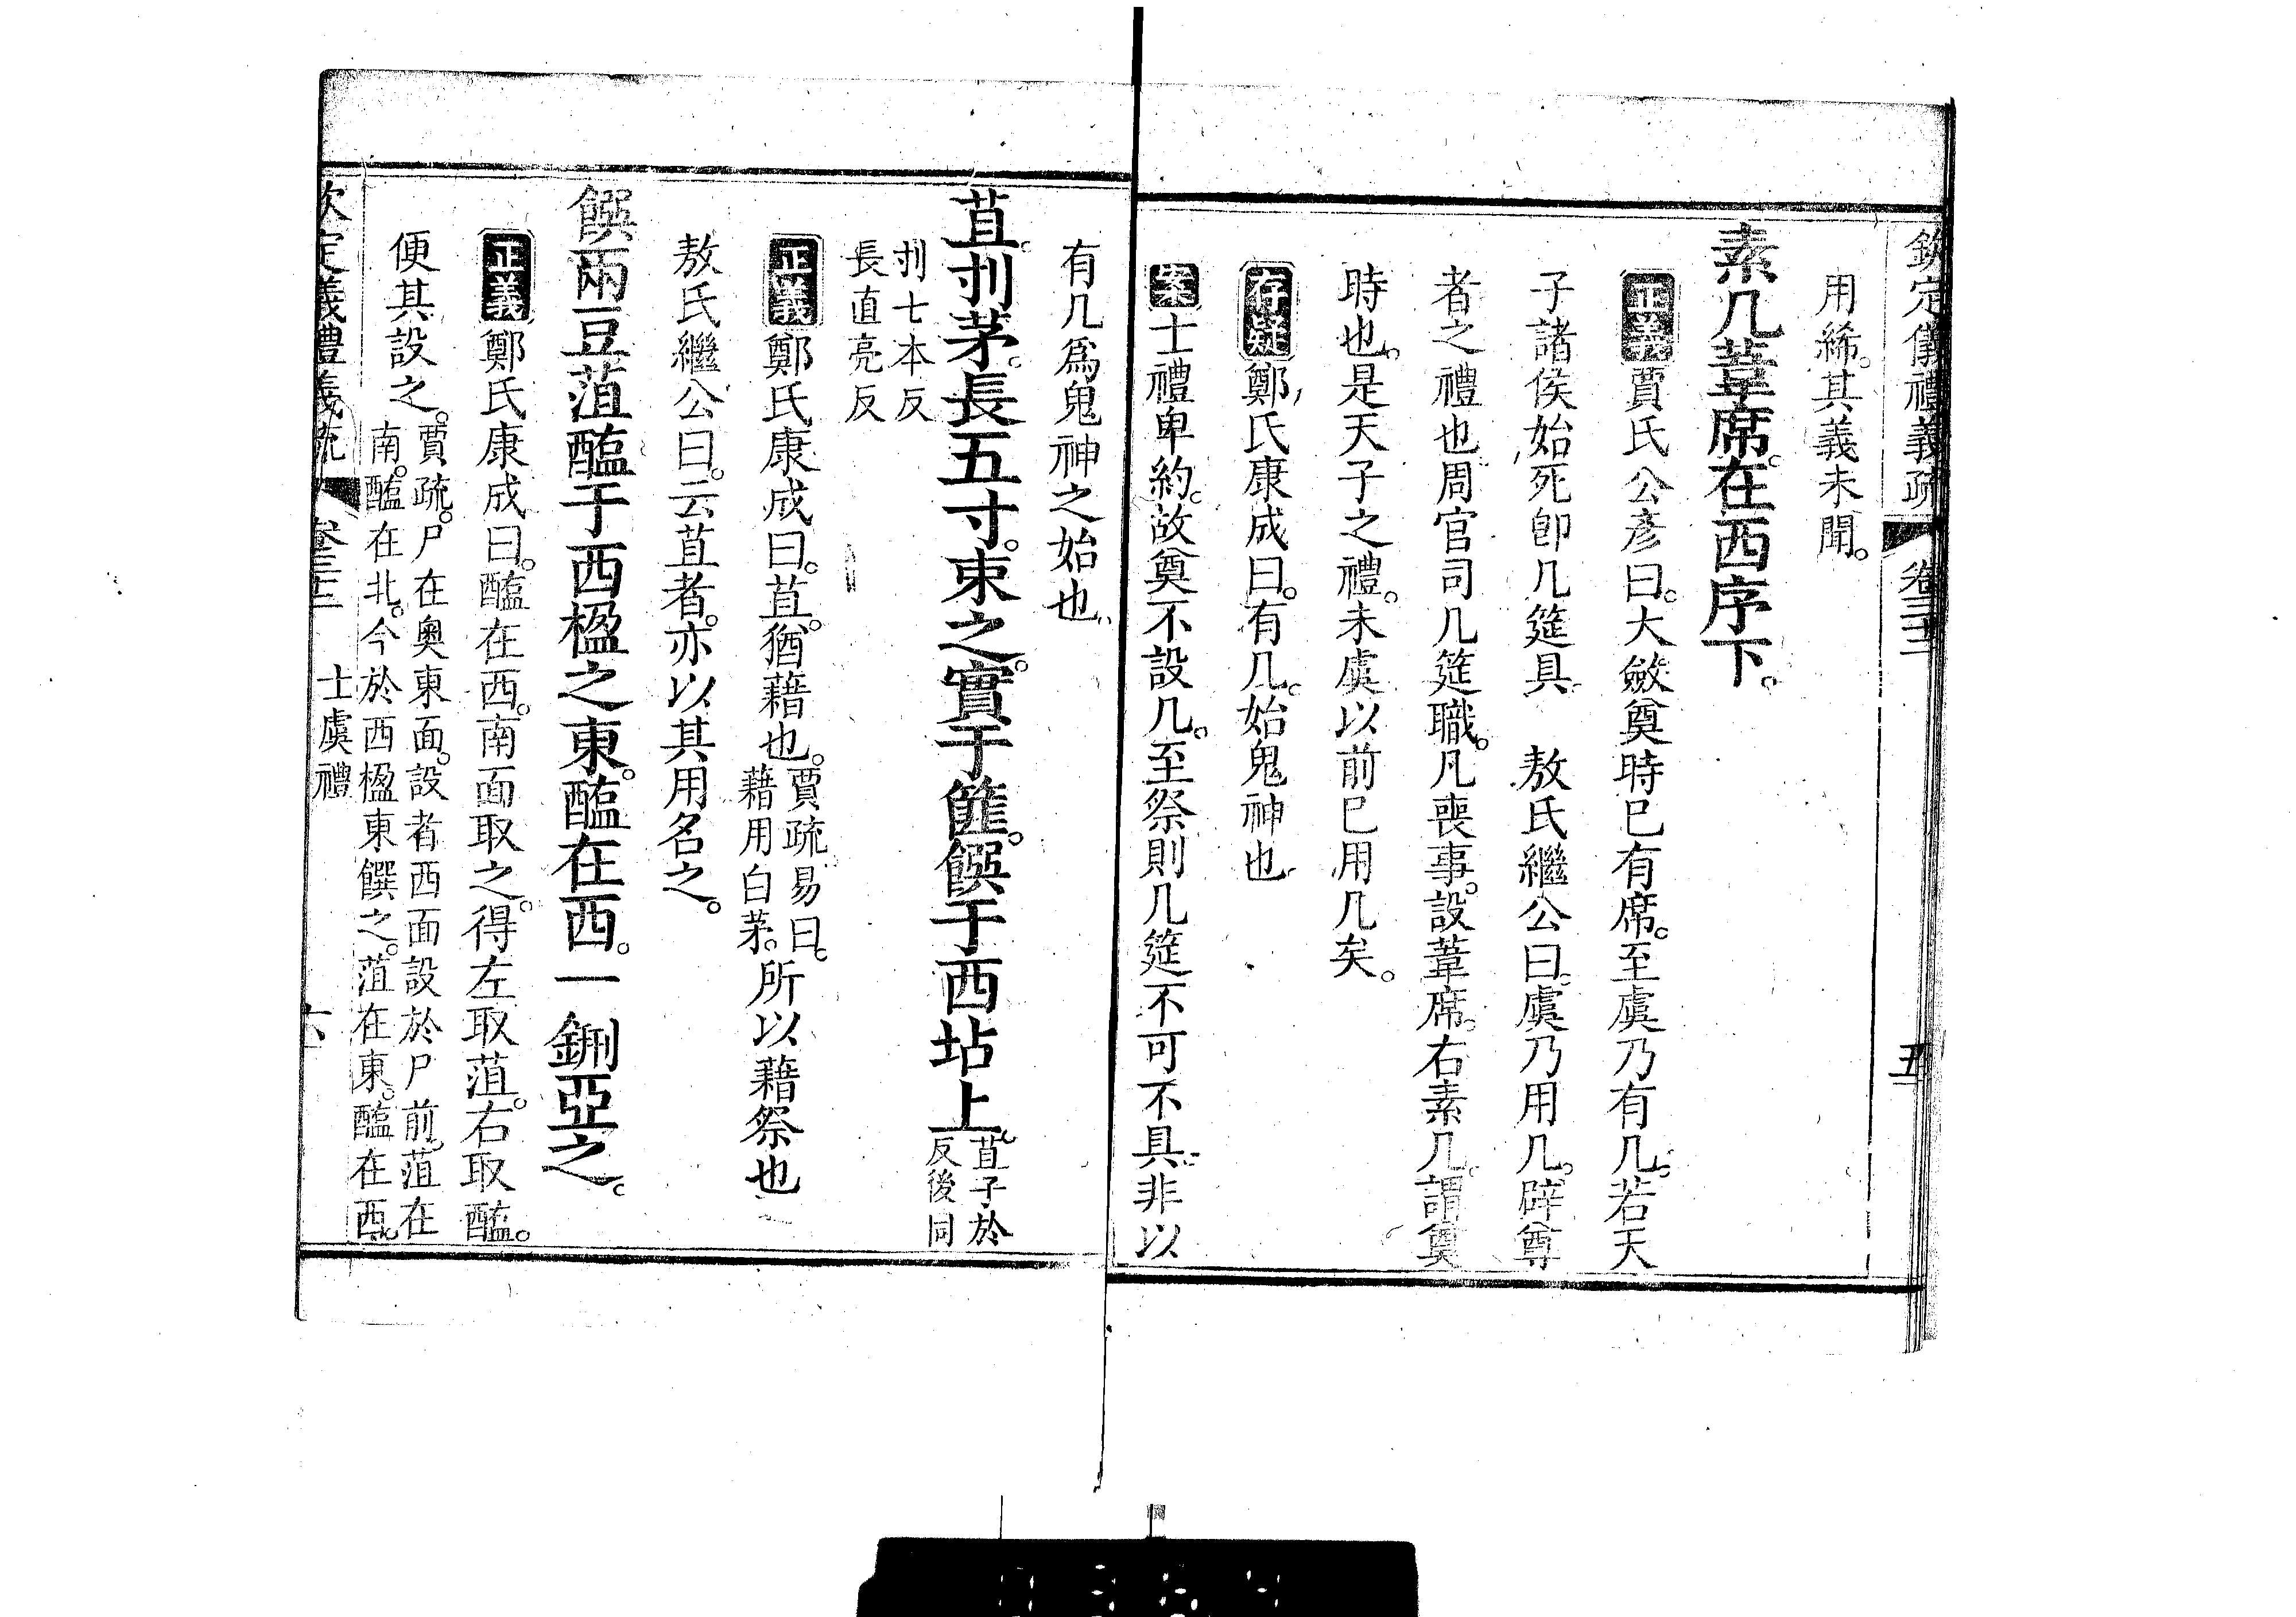 欽定儀禮義疏 卷三十二 五
用絺。其義未聞。
素几葦席。在西序下。
正義賈氏公彥曰。大斂奠時已有席。至虞乃有几。若天
子諸侯始死卽几筵具 敖氏繼公曰。虞乃用几。辟尊
者之禮也周官司几筵職。凡喪事。設葦席。右素几。謂奠
時也。是天子之禮。未虞以前已用几矣。
存疑鄭氏康成曰。有几。始鬼神也
案士禮卑約。故奠不設几。至祭則几筵不可不具。非以
有几爲鬼神之始也
苴。刌茅。長五寸。束之。實于篚。饌于西坫上。苴子於
反後同
刌七本反
長直亮反
正義鄭氏康成曰。苴。猶藉也。賈疏易曰。
藉用白茅。所以藉祭也
敖氏繼公曰。云苴者。亦以其用名之。
饌兩豆菹醢于西楹之東。醢在西。一鉶亞之。
正義鄭氏康成曰。醢在西。南面取之。得左取菹。右取醢。
便其設之。賈疏。尸在奧東面。設者西面設於尸前。菹在
南。醢在北。今於西楹東饌之。菹在東。醢在西。
欽定儀禮義疏 卷三十二 士虞禮 六